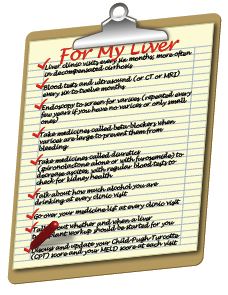 For My Liver
Liver clinic visits every six months, more often
in decompensated cirrhosis
Blood tests and ultrasound (or CT or MRI)
every six to twelve months
Endoscopy to screen for varices (repeated every
few years if you have no varices or only small
ones)
Take medicines called beta blockers when
varices are large to prevent them from
bleeding
Take medicines called diuretics
(spironolactone alone or with furosemide) to
decrease ascites, with regular blood tests to
check for kidney health
Talk about how much alcohol you are
drinking at every clinic visit
Go over your medicine list at every clinic visit
Talk about whether and when a liver
workup should be started for you
Discuss and update your Child-Pugh-Turcotte
(CPT) score and your MELD score at each visit